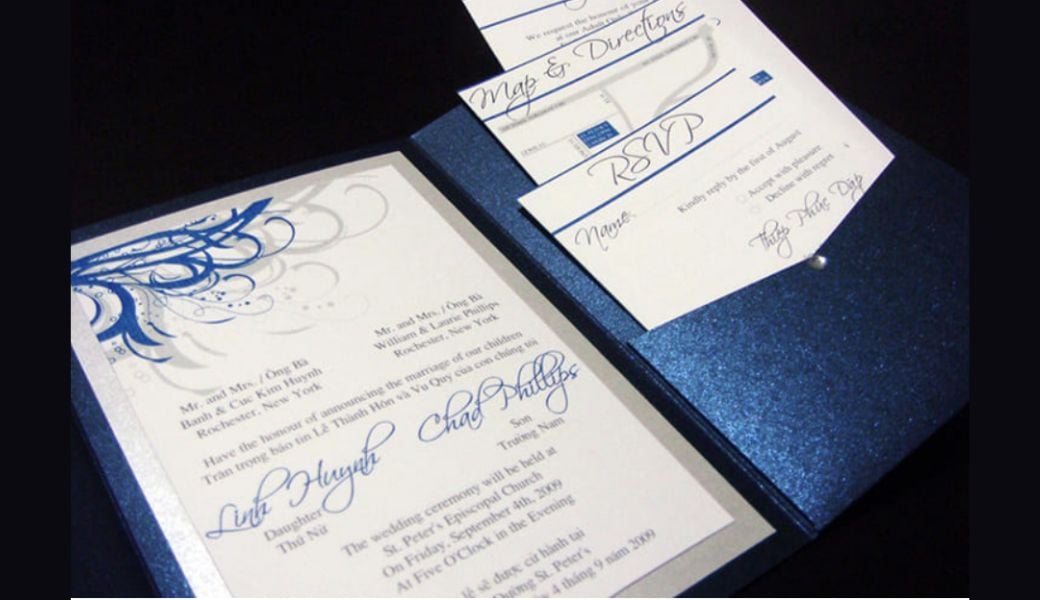 We request the honour of your
at our Adult
Map & Directions
RSVP
Kindly reply by the first of August
Accept with pleasure
Decline with regret
Name:
Thiệp Phúc Diệp
Mr. and Mrs. / Ông Bà
Banh & Cuc Kim Huynh
Rochester, New York
Mr. and Mrs. / Ông Bà
William & Laurie Phillips
Rochester, New York
Have the honour of announcing the marriage of our children
Trân trọng báo tin Lễ Thành Hôn và Vu Quy của con chúng tôi
Linh Huynh
Daughter
Thứ Nữ
Chad Phillips
Son
Trưởng Nam
The wedding ceremony will be held at
St. Peter's Episcopal Church
On Friday, September 4th, 2009
At Five O'Clock in the Evening
lễ sẽ được cử hành tại
Đường St. Peter's
4 tháng 9 năm 2009